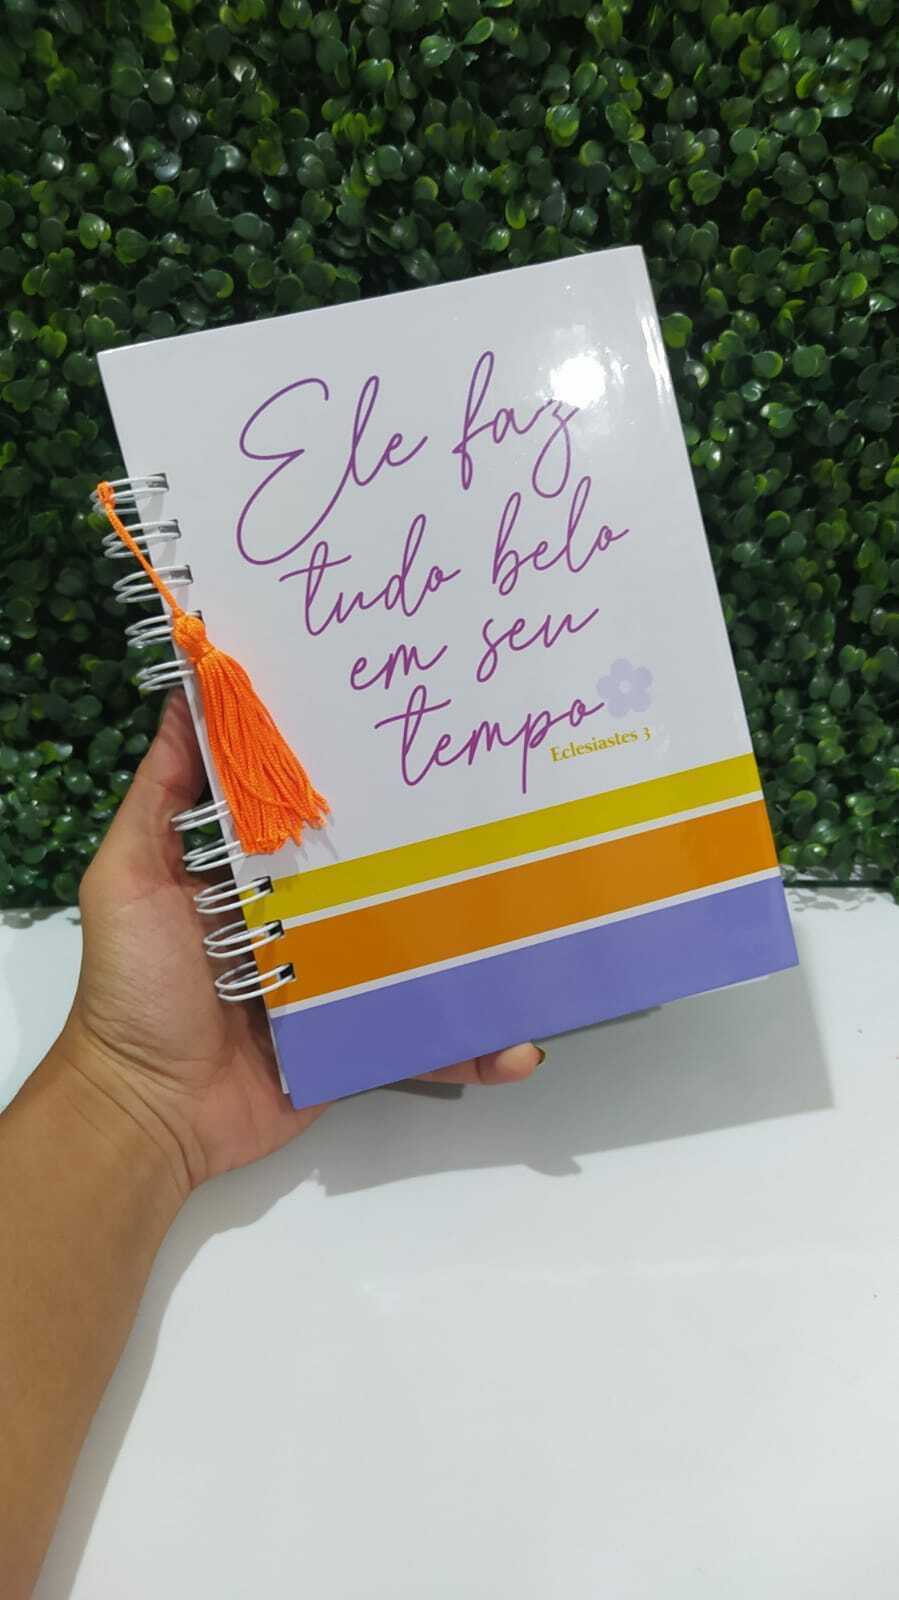 Ele faz
tudo belo
em seu
tempo
Eclesiastes 3